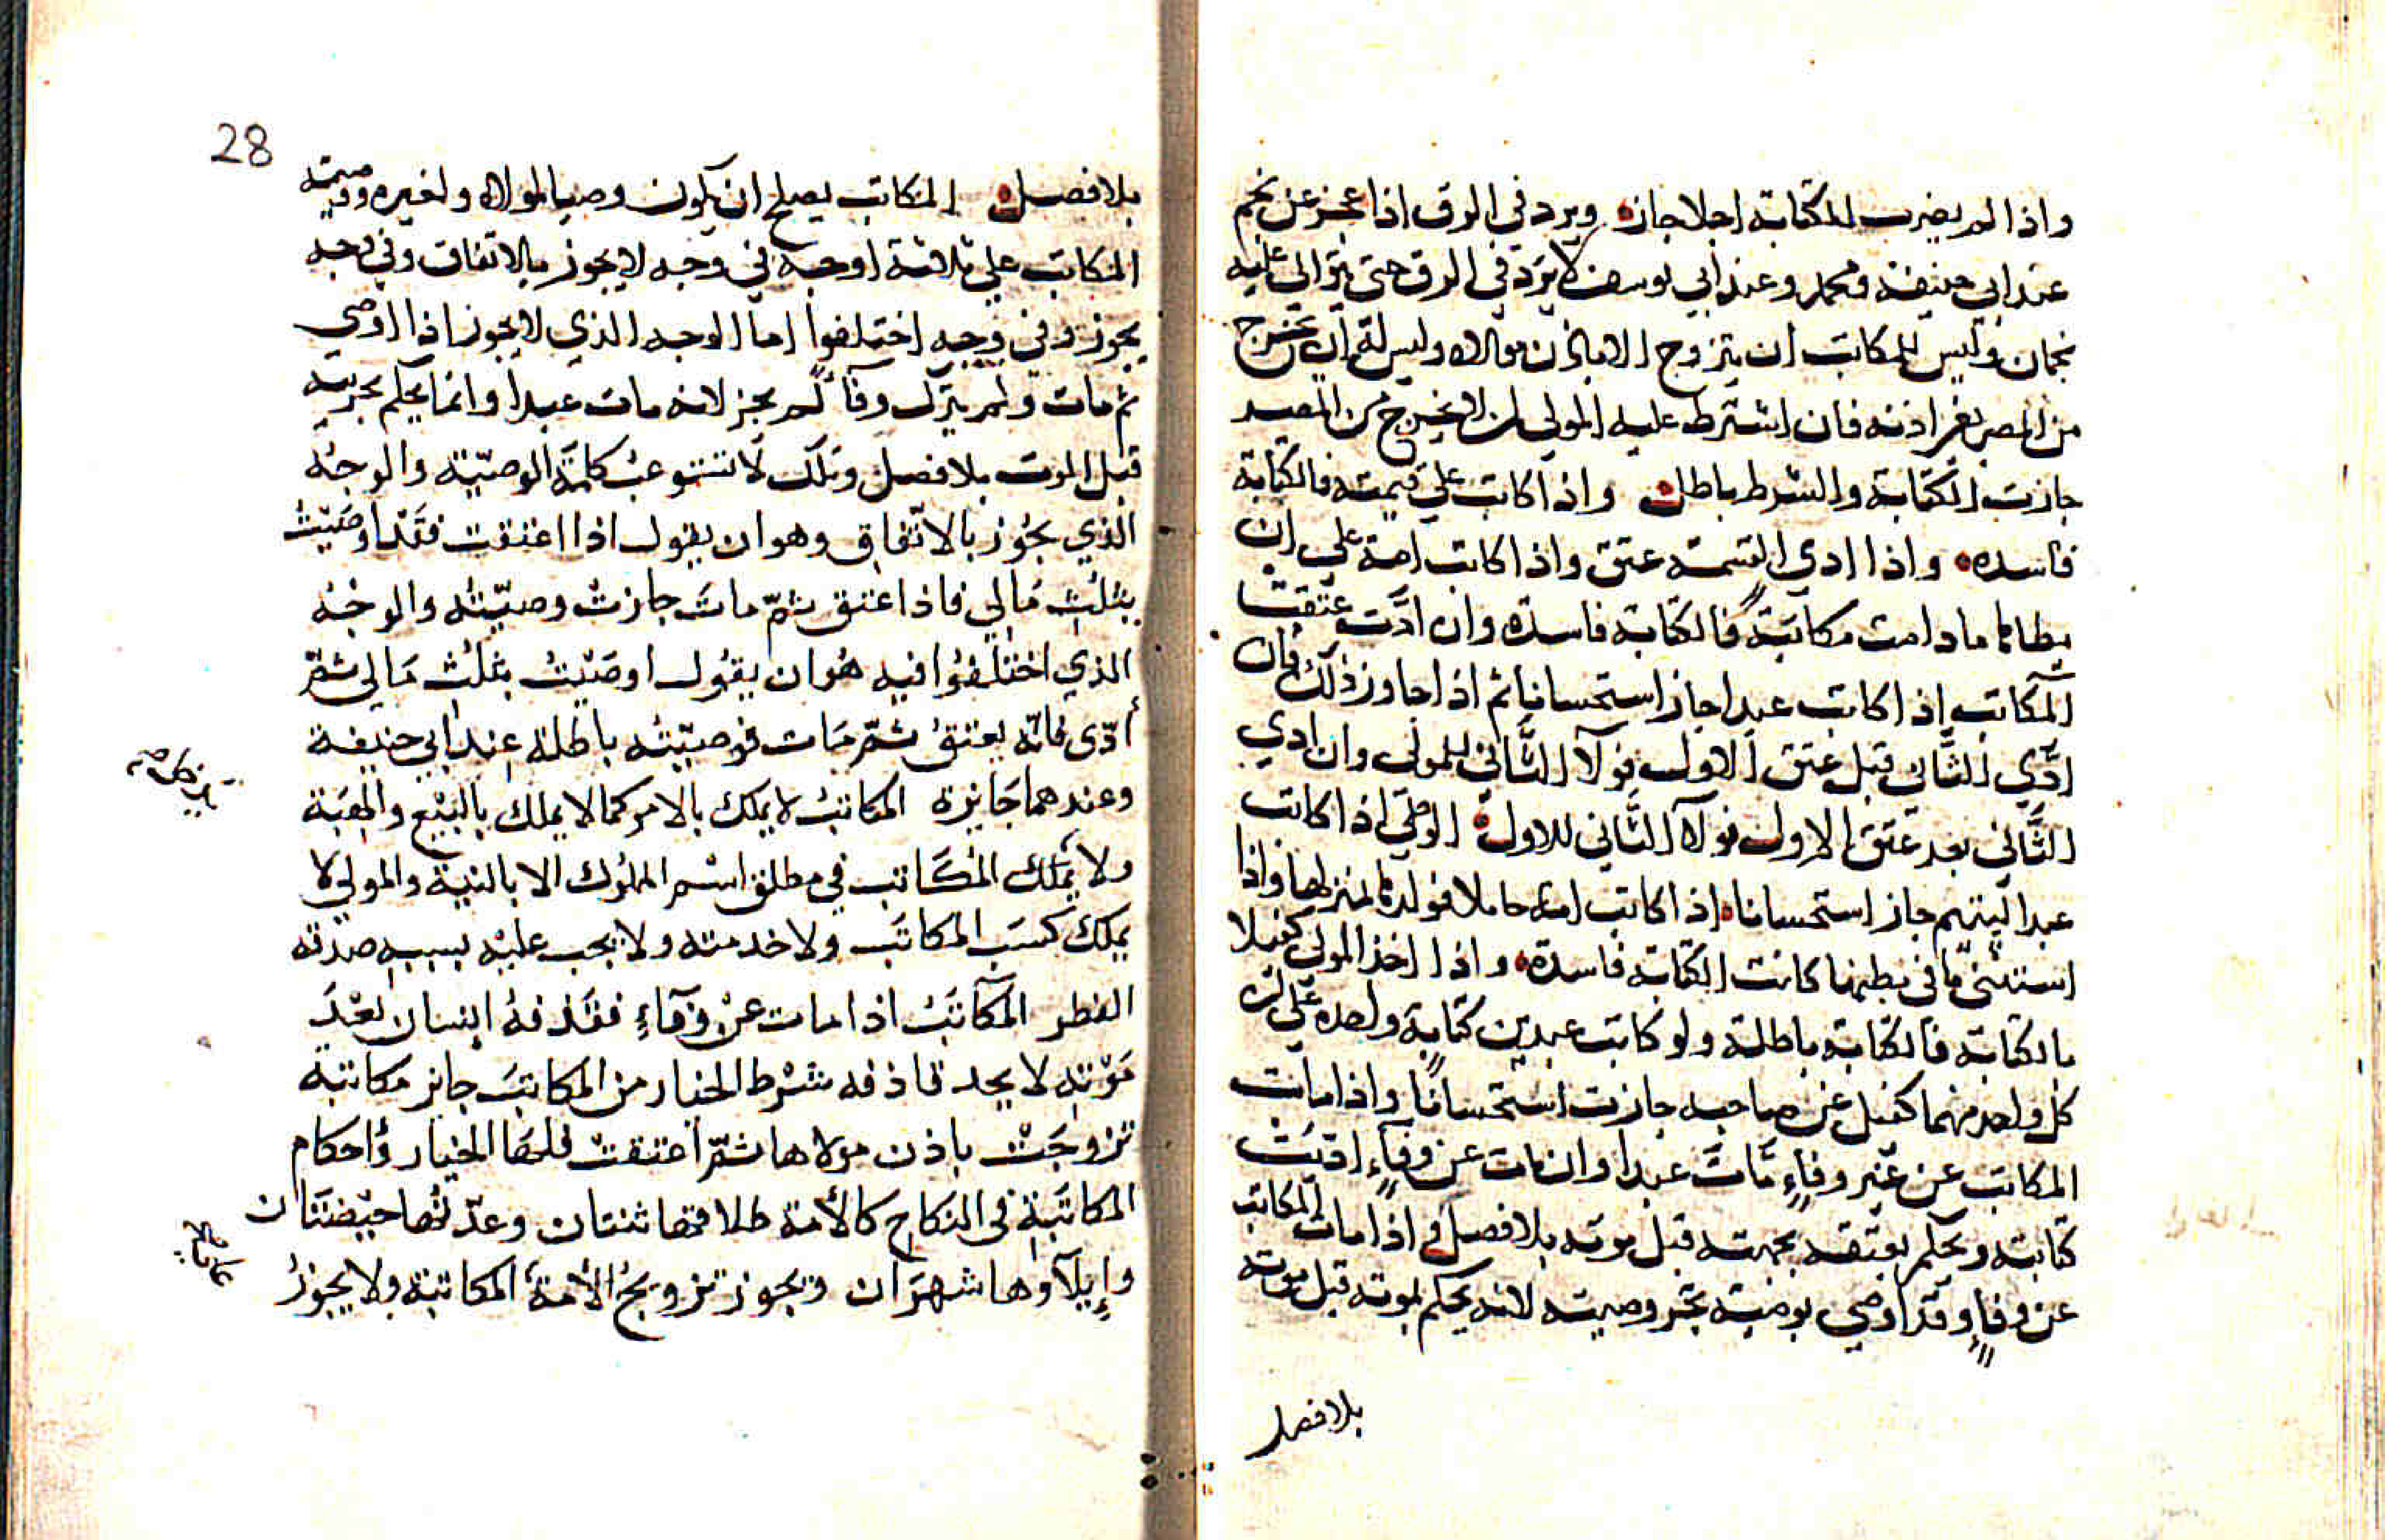 واذا لم يضرب للكتابة اجلا جازه ويرد في الرق اذا عجز عن نجم
عند ابي حنيفة ومحمد وعند ابي يوسف لا يرد في الرق حتى يتوالى عليه
نجمان وليس للمكاتب ان يتزوج الا باذن مولاه وليس له ان يخرج
من المصر بغير اذنه فان اشترط عليه المولى ان لا يخرج من المصر
جازت الكتابة والشرط باطل واذا كاتب على قيمته فالكتابة
فاسده واذا ادى القيمة عتق واذا كاتب امة على ان
يطاها ما دامت مكاتبة فالكتابة فاسدة وان ادّت عتقت
المكاتب اذا كاتب عبدا جاز استحسانا ثم اذا جاوز ذلك فان
ادّى الثاني قبل عتق الاول فولآ الثاني للمولى وان ادى
الثاني بعد عتق الاول فولآ الثاني للاول الوصي اذا كاتب
عبد اليتيم جاز استحسانا اذا كاتب امة حاملا فولدها بمنزلتها واذا
استثنى ما في بطنها كانت الكتابة فاسدة واذا اخذ المولى كفيلا
بالكتابة فالكتابة باطلة ولو كاتب عبدين كتابة واحدة على ان
كل واحد منهما كفيل عن صاحبه جازت استحسانًا واذا مات
المكاتب عن غير وفاءٍ مات عبدا وان مات عن وفاءٍ اديت
كتابته وحكم بعتقه بجهته قبل موته بلا فصل اذا مات المكاتب
عن وفاءٍ وقد اوصى بوصية تجز وصيته لانه يحكم بموته قبل موته
بلا فصل
28
بلا فصل المكاتب يصلح ان يكون وصيا لمولاه ولغيره ووصية
المكاتب على ثلاثة اوجه في وجه لا يجوز بالاتفاق وفي وجه
يجوز وفي وجه اختلفوا اما الوجه الذي لا يجوز اذا اوصى
ثم مات ولم يترك وفآ لم يجز لانه مات عبدا وانما يحكم بحريته
قبل الموت بلا فصل وتلك لا تستوعب كلمة الوصيّة والوجه
الذي يجوز بالاتّفاق وهو ان يقول اذا اعتقت فقد اوصيت
بثلث مالي فاذا عتق ثمّ مات جازت وصيّته والوجه
الذي اختلفوا فيه هو ان يقول اوصيت بثلث مالي ثمّ
أدّى فانّه يعتق ثمّ مات فوصيّته باطلة عند ابي حنيفة
وعندهما جايزة المكاتب لا يملك بالامر كما لا يملك بالبيع والهبة
ولا يملك المكاتب في مطلق اسم المملوك الا بالنية والمولى لا
يملك كسب المكاتب ولا خدمته ولا يجب عليه بسببه صدقة
الفطر المكاتب اذا مات عن وفآءٍ فقذفه انسان بعد
موته لا يحد قاذفه شرط الخيار من المكاتب جايز مكاتبة
تزوجت باذن مولاها ثمّ اعتقت فلها الخيار وأحكام
المكاتبة في النكاح كالأمة طلاقها ثنتان وعدّتها حيضتان
وإيلآوها شهران ويجوز تزويج الأمة المكاتبة ولا يجوز